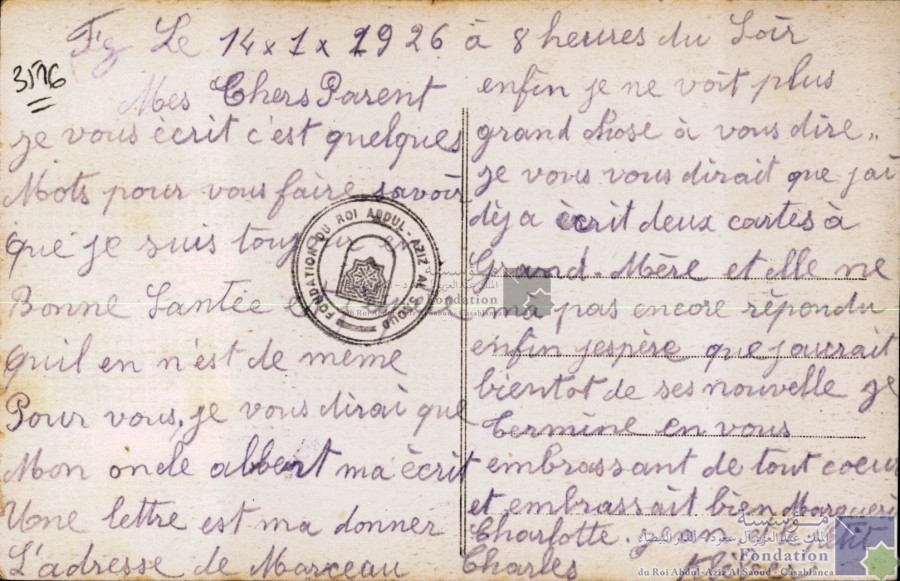 Fz Le 14 x 1 x 1926 à 8 heures du Soir
3576
Mes Chers Parent
je vous ècrit c'est quelques
Mots pour vous faire savoir
que je suis toujour en
Bonne Santèe et
quil en n'est de même
Pour vous, je vous dirai que
Mon oncle albert ma ècrit
Une lettre est ma donner
L'adresse de Marceau
enfin je ne voit plus
grand chose à vous dire..
je vous vous dirait que j'ai
dèja ècrit deux cartes à
Grand-Mère et elle ne
ma pas encore rèpondu
enfin jespère que jaurait
bientot de ses nouvelle je
termine en vous
embrassant de tout coeur
et embrassait bien Margueri
Charlotte. jean et le petit
Charles
FONDATION DU ROI ABDUL-AZIZ AL SAOUD
مؤسسة
الملك عبد العزيز آل سعود - الدار البيضاء
Fondation
du Roi Abdul-Aziz Al Saoud - Casablanca
مؤسسة
الملك عبد العزيز آل سعود - الدار البيضاء
Fondation
du Roi Abdul-Aziz Al Saoud - Casablanca